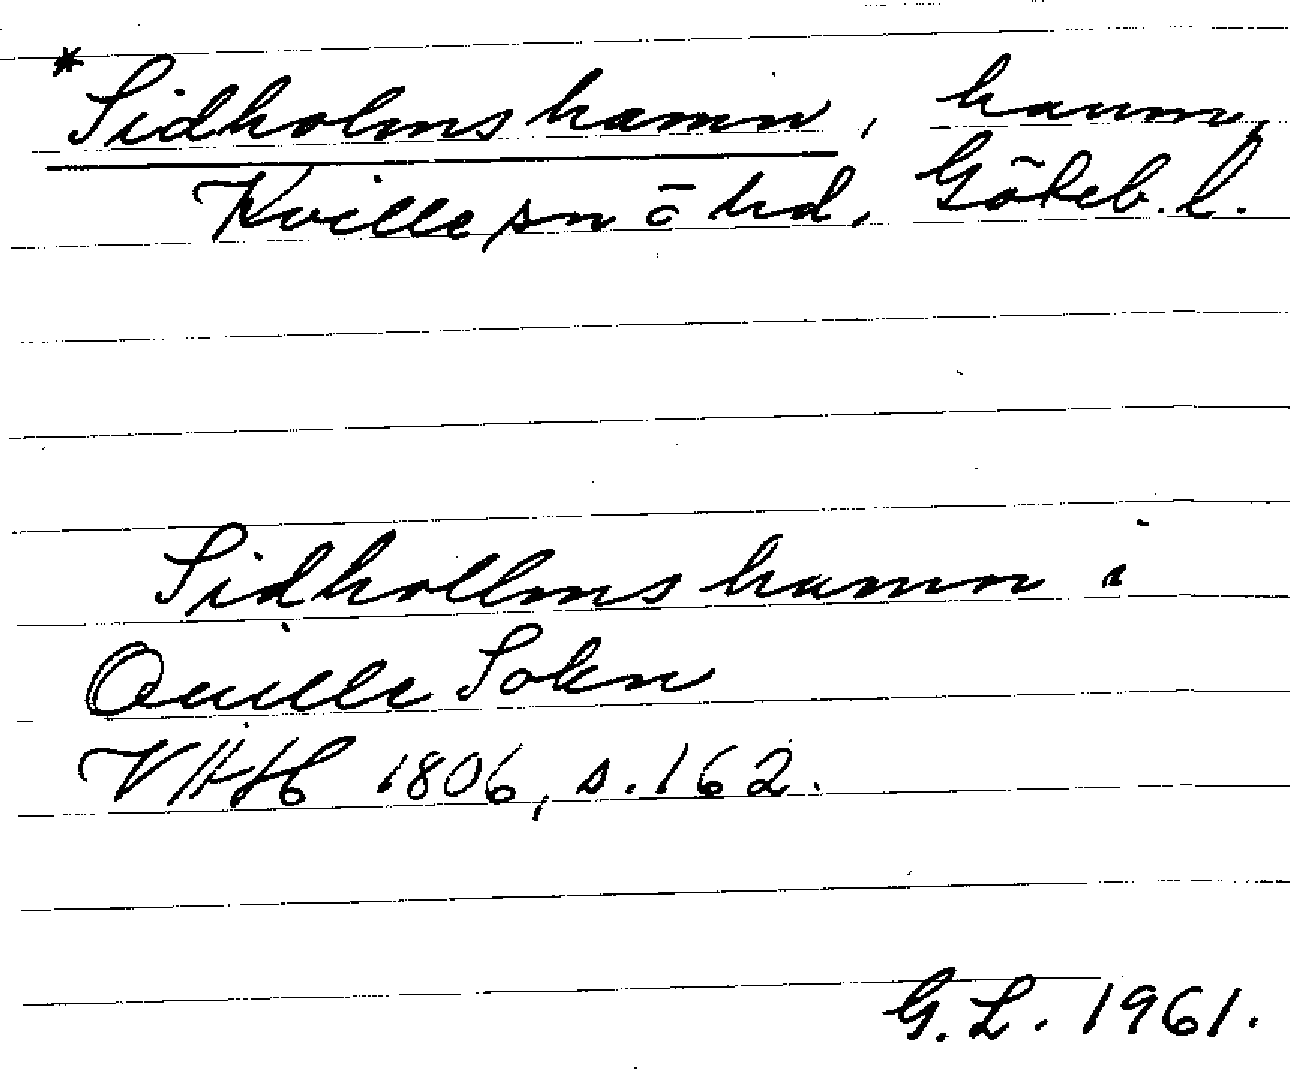 *Sidholmshamn, hamn,
Kville sn ō hd, Göteb. l.
Sidhollms hamn i
Quille Sokn
VHH 1806, s. 162.
G. L. 1961.